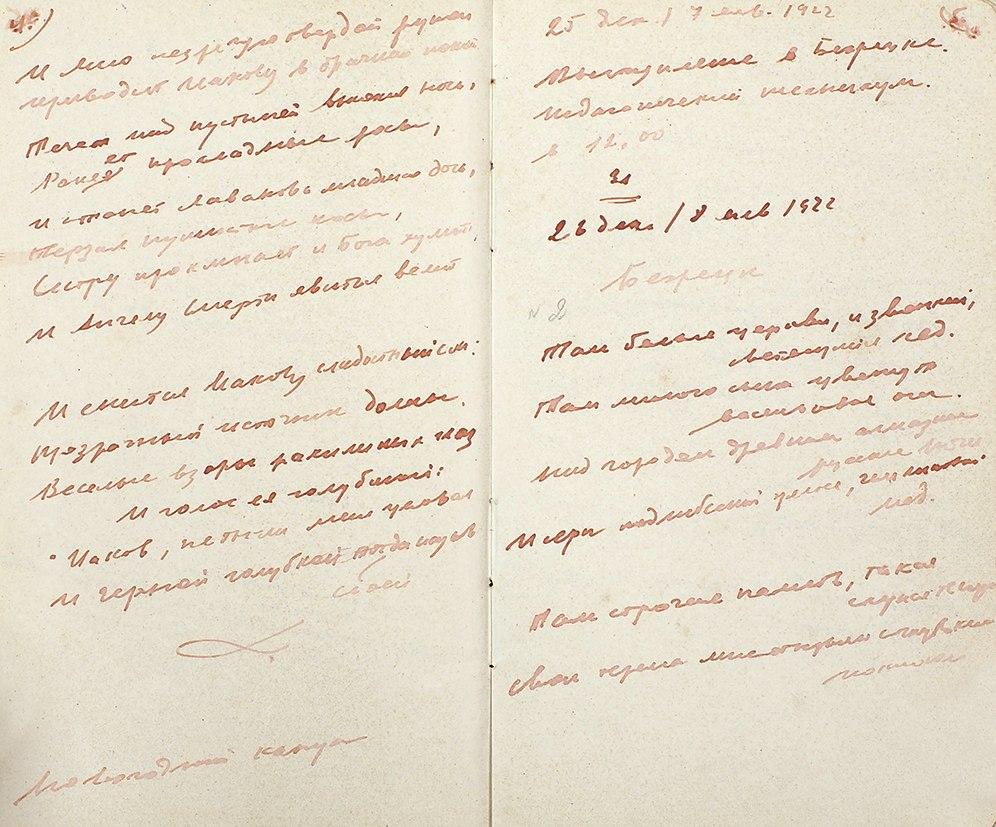 4.
И Лию незрячую твердой рукой
приводит Иакову в брачный покой
Течет над пустыней высокая ночь,
Роняет прохладные росы,
и стонет Лаванова младшая дочь,
Терзая пушистые косы,
Сестру проклинает и Бога хулит
И Ангелу Смерти явиться велит
И снится Иакову сладостный час:
Прозрачный источник долины.
Веселые взоры рахилиных глаз
И голос ее голубиный:
"Иаков, не ты ли меня целовал
И черной голубкой
своей
Новогодний канун
5.
25 дек / 7 янв. 1922
Выступление в Бежецке.
Педагогический техникум.
в 12,00
26 дек. / 8 янв 1922
Бежецк
N 2
Там белые церкви, и звонкий,
светящийся лед.
Там милого сына цветут
васильковые очи.
Над городом древним алмазные
русские ночи
И серп поднебесный желтее, чем липовый
мед.
Там строгая память, такая
скупая теперь
Свои терема мне открыла с глубоким
поклоном